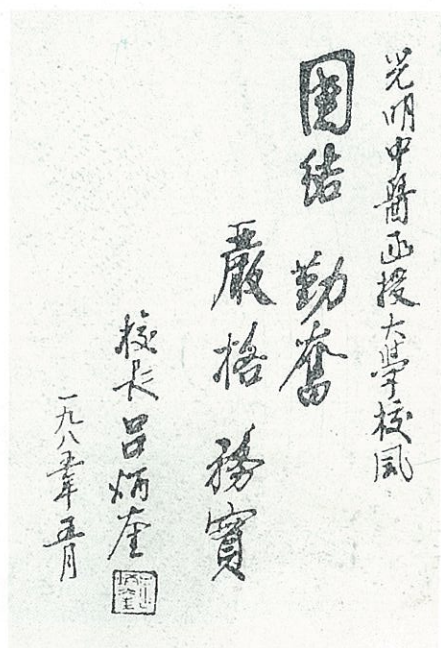 光明中醫函授大學校風
團结 勤奮
嚴格 務實
校长 吕炳奎
一九八五年五月